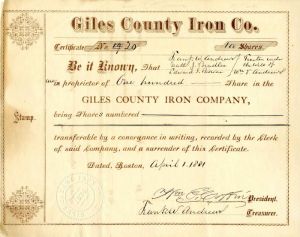 Giles County Iron Co.
Certificate No. 1420 100 Shares.
Be it Known, That Frank W. Andrews
Edward F. Wm. T. Andrews
in proprietor of One hundred Share in the
GILES COUNTY IRON COMPANY,
being Shares numbered
Stamp.
transferable by a conveyance in writing, recorded by the Clerk
of said Company, and a surrender of this Certificate.
Dated, Boston, April 1. 1881
President.
Frank W. Andrews Treasurer.